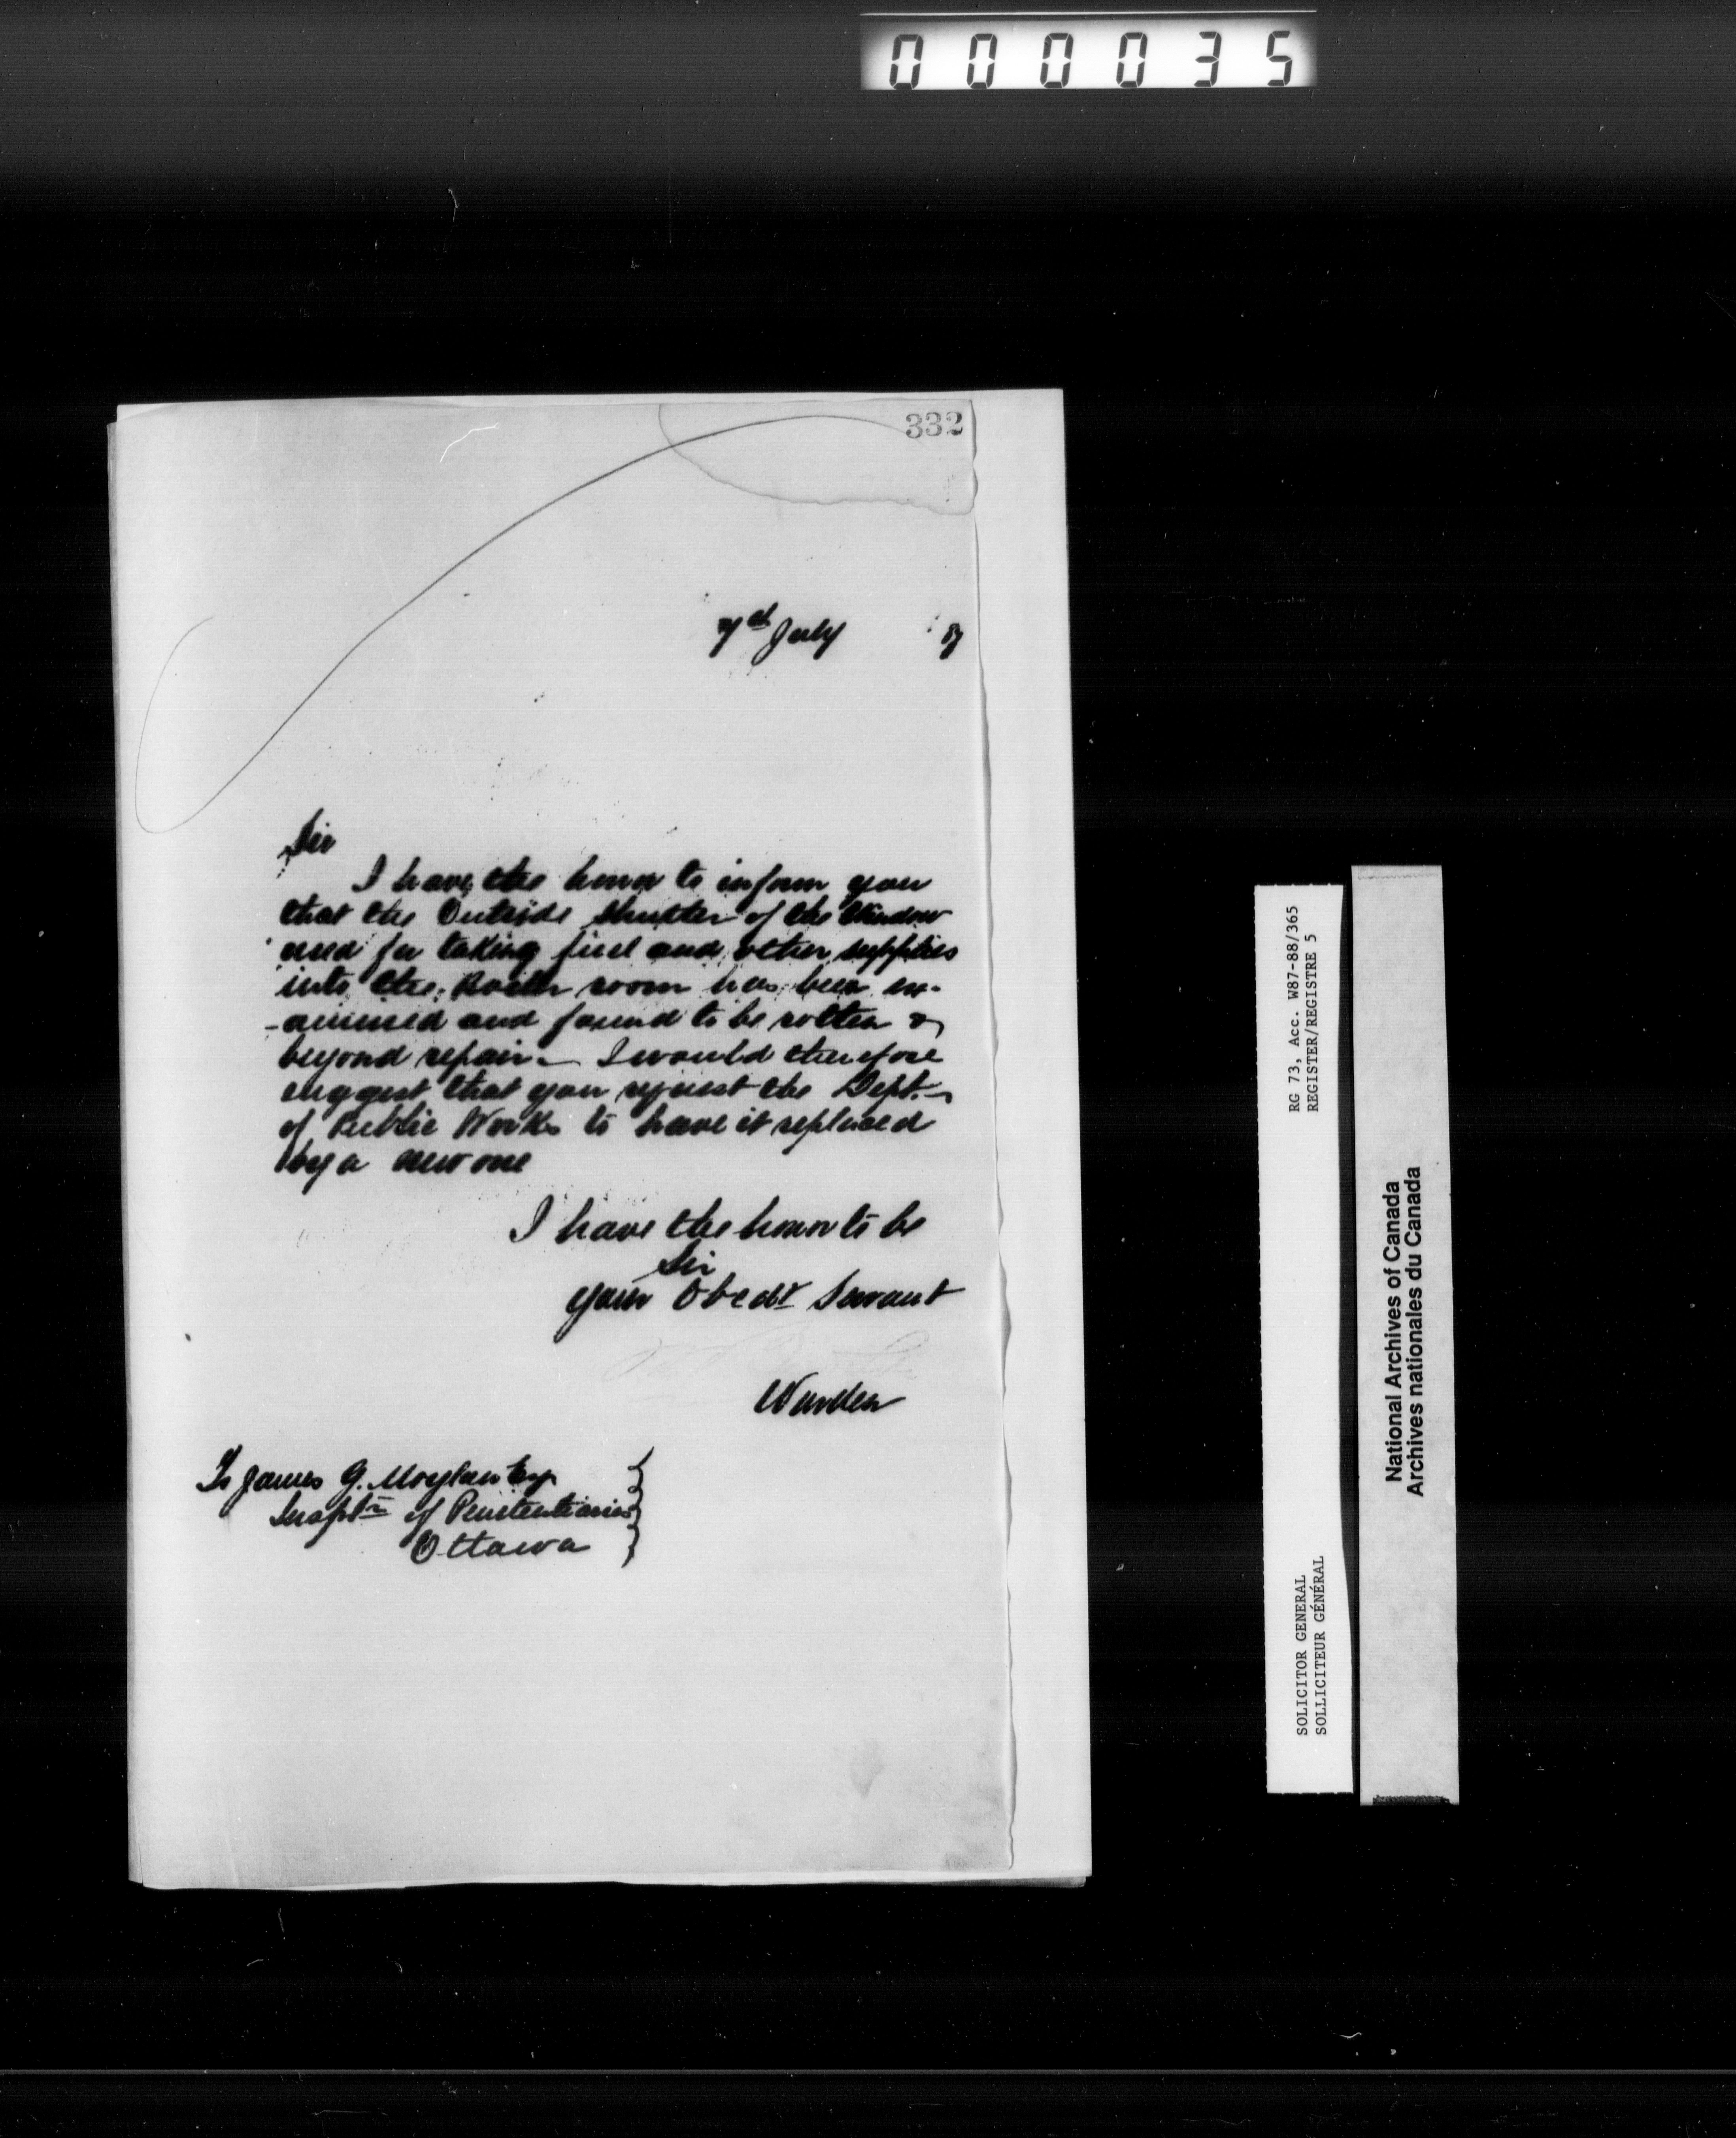 000035
332
7th July
Sir
I have the honor to inform you
that the Outside shutter of the Window
used for taking fuel and other supplies
into the Boiler room has been ex-
-amined and found to be rotten &
beyond repair. I would therefore
suggest that you request the Dept.
of Public Works to have it replaced
by a new one
I have the honor to be
Sir
your Obedt Servant
Warden
To James G. Moylan Esq
Inspt of Penitentiaries
Ottawa
RG 73, Acc. W87-88/365
REGISTER/REGISTRE 5
SOLICITOR GENERAL
SOLLICITEUR GÉNÉRAL
National Archives of Canada
Archives nationales du Canada